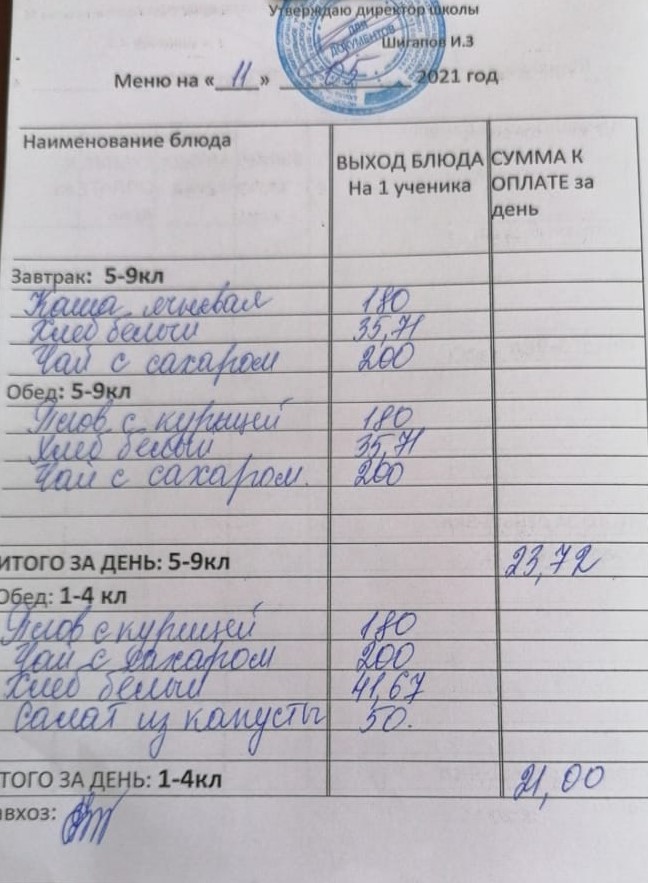 Утверждаю директор школы
ДЛЯ ДОКУМЕНТОВ
Шигапов И.З
Меню на «11» 05 2021 год
Наименование блюда ВЫХОД БЛЮДА На 1 ученика СУММА К ОПЛАТЕ за день
Завтрак: 5-9кл
Каша ячневая 180
Хлеб белый 35,71
Чай с сахаром 200
Обед: 5-9кл
Плов с курицей 180
Хлеб белый 35,71
Чай с сахаром. 200
ИТОГО ЗА ДЕНЬ: 5-9кл 23,72
Обед: 1-4 кл
Плов с курицей 180
Чай с сахаром 200
Хлеб белый 41,67
Салат из капусты 50.
ТОГО ЗА ДЕНЬ: 1-4кл 21,00
авхоз: